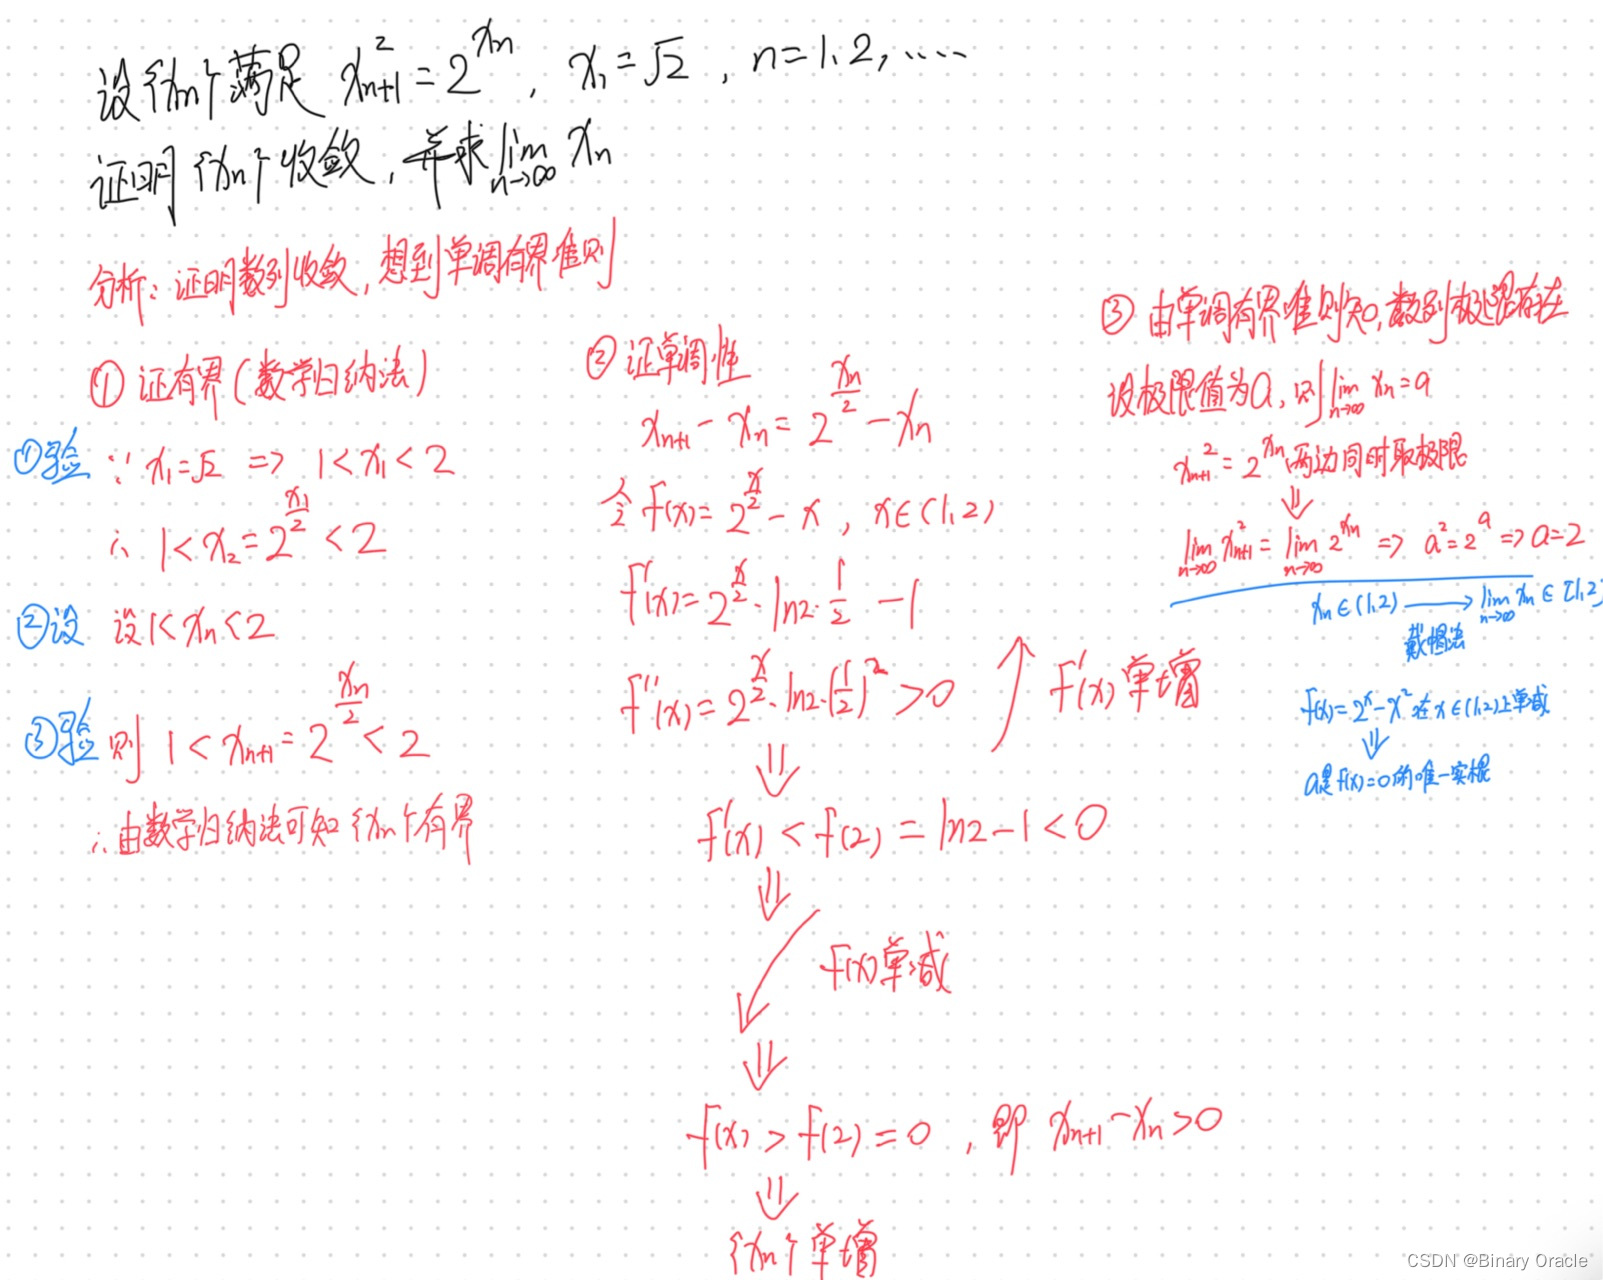 设{xn}满足 xn+1² = 2^xn, x1 = √2, n=1.2,.....
证明{xn}收敛,并求lim n→∞ xn
分析:证明数列收敛,想到单调有界准则
① 证有界(数学归纳法)
①验 ∵ x1=√2 => 1<x1<2
∴ 1<x2=2^(x1/2)<2
②设 设1<xn<2
③验 则 1<xn+1=2^(xn/2)<2
∴由数学归纳法可知{xn}有界
② 证单调性
xn+1 - xn = 2^(xn/2) - xn
令 f(x)=2^(x/2) - x, x∈(1,2)
f'(x)=2^(x/2)·ln2·1/2 -1
f''(x)=2^(x/2)·ln2·(1/2)²>0 ↗ f'(x)单增
⇓
f'(x)<f'(2)=ln2-1<0
⇓
↙ f(x)单减
⇓
f(x)>f(2)=0,即 xn+1-xn>0
⇓
{xn}单增
③ 由单调有界准则知,数列极限存在
设极限值为a,则lim n→∞ xn=a
xn+1²=2^xn两边同时取极限
⇓
lim n→∞ xn+1² = lim n→∞ 2^xn => a²=2^a => a=2
xn∈(1,2) → lim n→∞ xn∈[1,2]
戴帽法
f(x)=2^x-x²在x∈(1,2)上单减
⇓
a是f(x)=0的唯一实根
CSDN @Binary Oracle